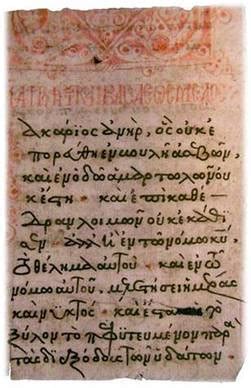 ακάριος ἀνὴρ, ὃς οὐκ ἐ
πορεύθη ἐν βουλῇ ἀσεβῶν,
καὶ ἐν ὁδῷ ἁμαρτωλῶν οὐ
κ ἔστη · καὶ ἐπὶ καθέ
δραν λοιμῶν οὐκ ἐκάθι
σεν · ἀλλ' ἢ ἐν τῷ νόμῳ κυ
θέλημα αὐτοῦ · καὶ ἐν τῷ
νόμῳ αὐτοῦ, μελετήσει ἡμέρας
καὶ νυκτός · καὶ ἔσται τὸ
ξύλον τὸ πεφυτευμένον παρὰ
τὰς διεξόδους τῶν ὑδάτων